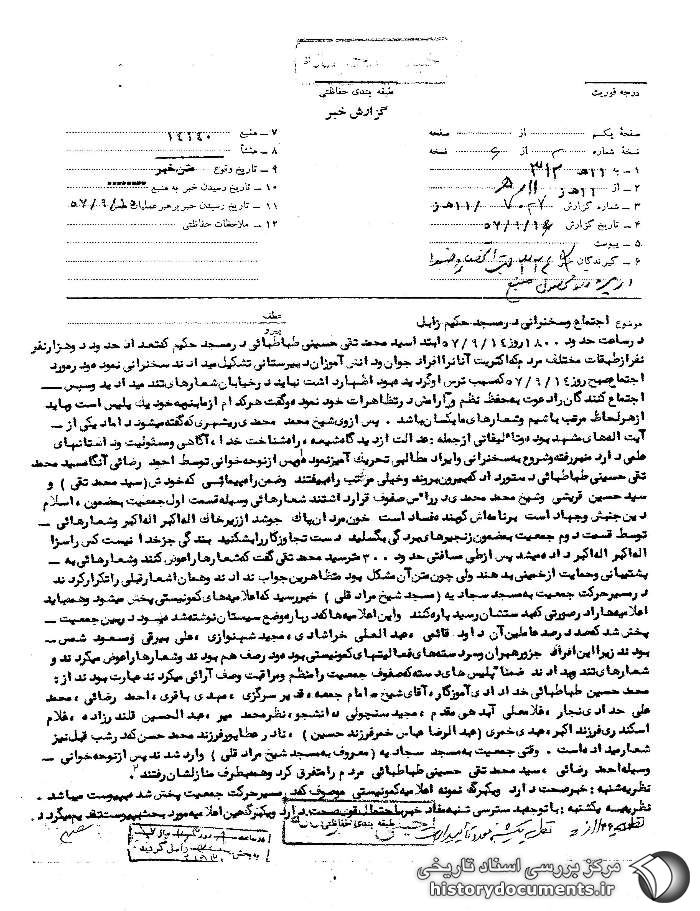 طبقه بندی حفاظتی
درجه فوریت
گزارش خبر
صفحه یکم از صفحه
نسخه شماره از نسخه
۱ - به ۳۱۲
۲ - از ۱۱ هـ
۳ - شماره گزارش
۴ - تاریخ گزارش
۵ - پیوست
۶ - گیرندگان خبر
۷ - منبع ۱۴۱۴۰
۸ - منشأ
۹ - تاریخ وقوع متن خبر
۱۰ - تاریخ رسیدن خبر به منبع
۱۱ - تاریخ رسیدن خبر برهبر عملیات
۱۲ - ملاحظات حفاظتی
موضوع اجتماع وسخنرانی درمسجد حکیم زابل
عطف
پیرو
درساعت حدود ۱۸۰۰ روز ۵۷/۹/۱۴ سید محمد تقی حسینی طباطبائی درمسجد حکیم که تعداد حدود دوهزارنفر
نفرازطبقات مختلف مردم که اکثریت آنانرا افراد جوان ودانش آموزان دبیرستانی تشکیل میدادند سخنرانی نمود
اجتماع صبح روز ۵۷/۹/۱۴ که سبب ترس اوگردیده بود اظهار داشت نباید درخیابان شعارهای تند میدادید وسپس
اجتماع کنندگان رادعوت به حفظ نظم وآرامش درتظاهرات خود نمود وگفت هرکدام ازما بنوبه خود یک پلیس است وباید
ازهرلحاظ مرتب باشیم وشعارهای مایکسان باشد . پس ازوی شیخ محمد محمدی ریشهری که گفته میشود داماد یکی از
آیت الله های مشهد بوده وتألیفاتی ازجمله : عدالت ازدیدگاه شیعه ، راه شناخت خدا ، آگاهی ومسئولیت وداستانهای
علمی دارد منبررفته وشروع به سخنرانی وایراد مطالبی تحریک آمیزنمود وپس ازنوحه خوانی توسط احمد رضائی آنگاه سید محمد
تقی حسینی طباطبائی دستورداد که بیرون بروند وخیلی مرتب راه بیفتند وضمن راهپیمائی که خودش (سید محمد تقی ) و
سید حسین قریشی وشیخ محمد محمدی درراس صفوف قرارداشتند شعارهائی وسیله قسمت اول جمعیت بمضمون ، اسلام
دین جنبش وجهاد است برنامه اش کوبنده فساد است خون مردان پاک جوشد اززیرخاک الله اکبر الله اکبر وشعارهائی
توسط قسمت دوم جمعیت بمضمون زنجیرهای بردگی بگسلید دست تجاوزکاررابشکنید بندگی جزخدا نیست کس راسزا
الله اکبر الله اکبر داده میشد پس ازطی مسافتی حدود ۳۰۰ متر سید محمد تقی گفت که شعارها راعوض کنند وشعارهائی به
پشتیبانی وحمایت ازخمینی بدهند ولی چون متن آن مشکل بود متظاهرین جواب ندادند وهمان شعارقبلی راتکرارکردند
درمسیرحرکت جمعیت به مسجد سجادیه ( مسجد شیخ مراد قلی ) خبررسید که اعلامیه های کمونیستی پخش میشود وهمه باید
اعلامیه هارا درصورتی که بدستشان رسید پاره کنند واین اعلامیه ها که درباره وضع سیستان نوشته شده بود دربین جمعیت
پخش شد که صددرصد عاملین آن داود قائمی ، عبدالعلی خراشادی ، مجید شهنوازی ، علی بیرقی ومسعود شمس
بودند زیرا این افراد جزورهبران وسردسته های فعالیتهای کمونیستی بوده ودرصف هم بودند وشعارهارا عوض میکردند و
شعارهای تند میدادند ضمنا پلیس های دسته که صفوف جمعیت رامنظم ومراقبت وصف آرائی میکردند عبارت بودند از :
محمد حسین طباطبائی خدادادی آموزگار ، آقای شیخ امام جمعه ، قدیر سرگزی ، مهدی باقری ، احمد رضائی ، محمد
علی حدادی نجار ، غلامعلی آبدهی مقدم ، مجید سنچولی دانشجو ، نظرمحمد میر ، عبدالحسین قلندرزاده ، غلام
اسکندری فرزند اکبر ، عبدی خمری (عبدالرضا عباس خمرفرزند حسین ) ، نادر عطاپورفرزند محمد حسن که درشب قبل نیز
شعار میداده است . وقتی جمعیت به مسجد سجادیه ( معروف به مسجد شیخ مراد قلی ) وارد شدند پس ازنوحه خوانی
وسیله احمد رضائی ، سید محمد تقی حسینی طباطبائی مردم رامتفرق کرد وهمه بطرف منازلشان رفتند .
نظریه شنبه : خبرصحت دارد ویکبرگ نمونه اعلامیه کمونیستی موصوف که درمسیرحرکت جمعیت پخش شد به پیوست میباشد .
نظریه یکشنبه : باتوجه به دسترسی شنبه مفاد خبر باحتمال قوی صحت دارد ویکبرگ عین اعلامیه مورد بحث به پیوست تقدیم میگردد .
طبقه بندی حفاظتی
مرکز بررسی اسناد تاریخی
historydocuments.ir